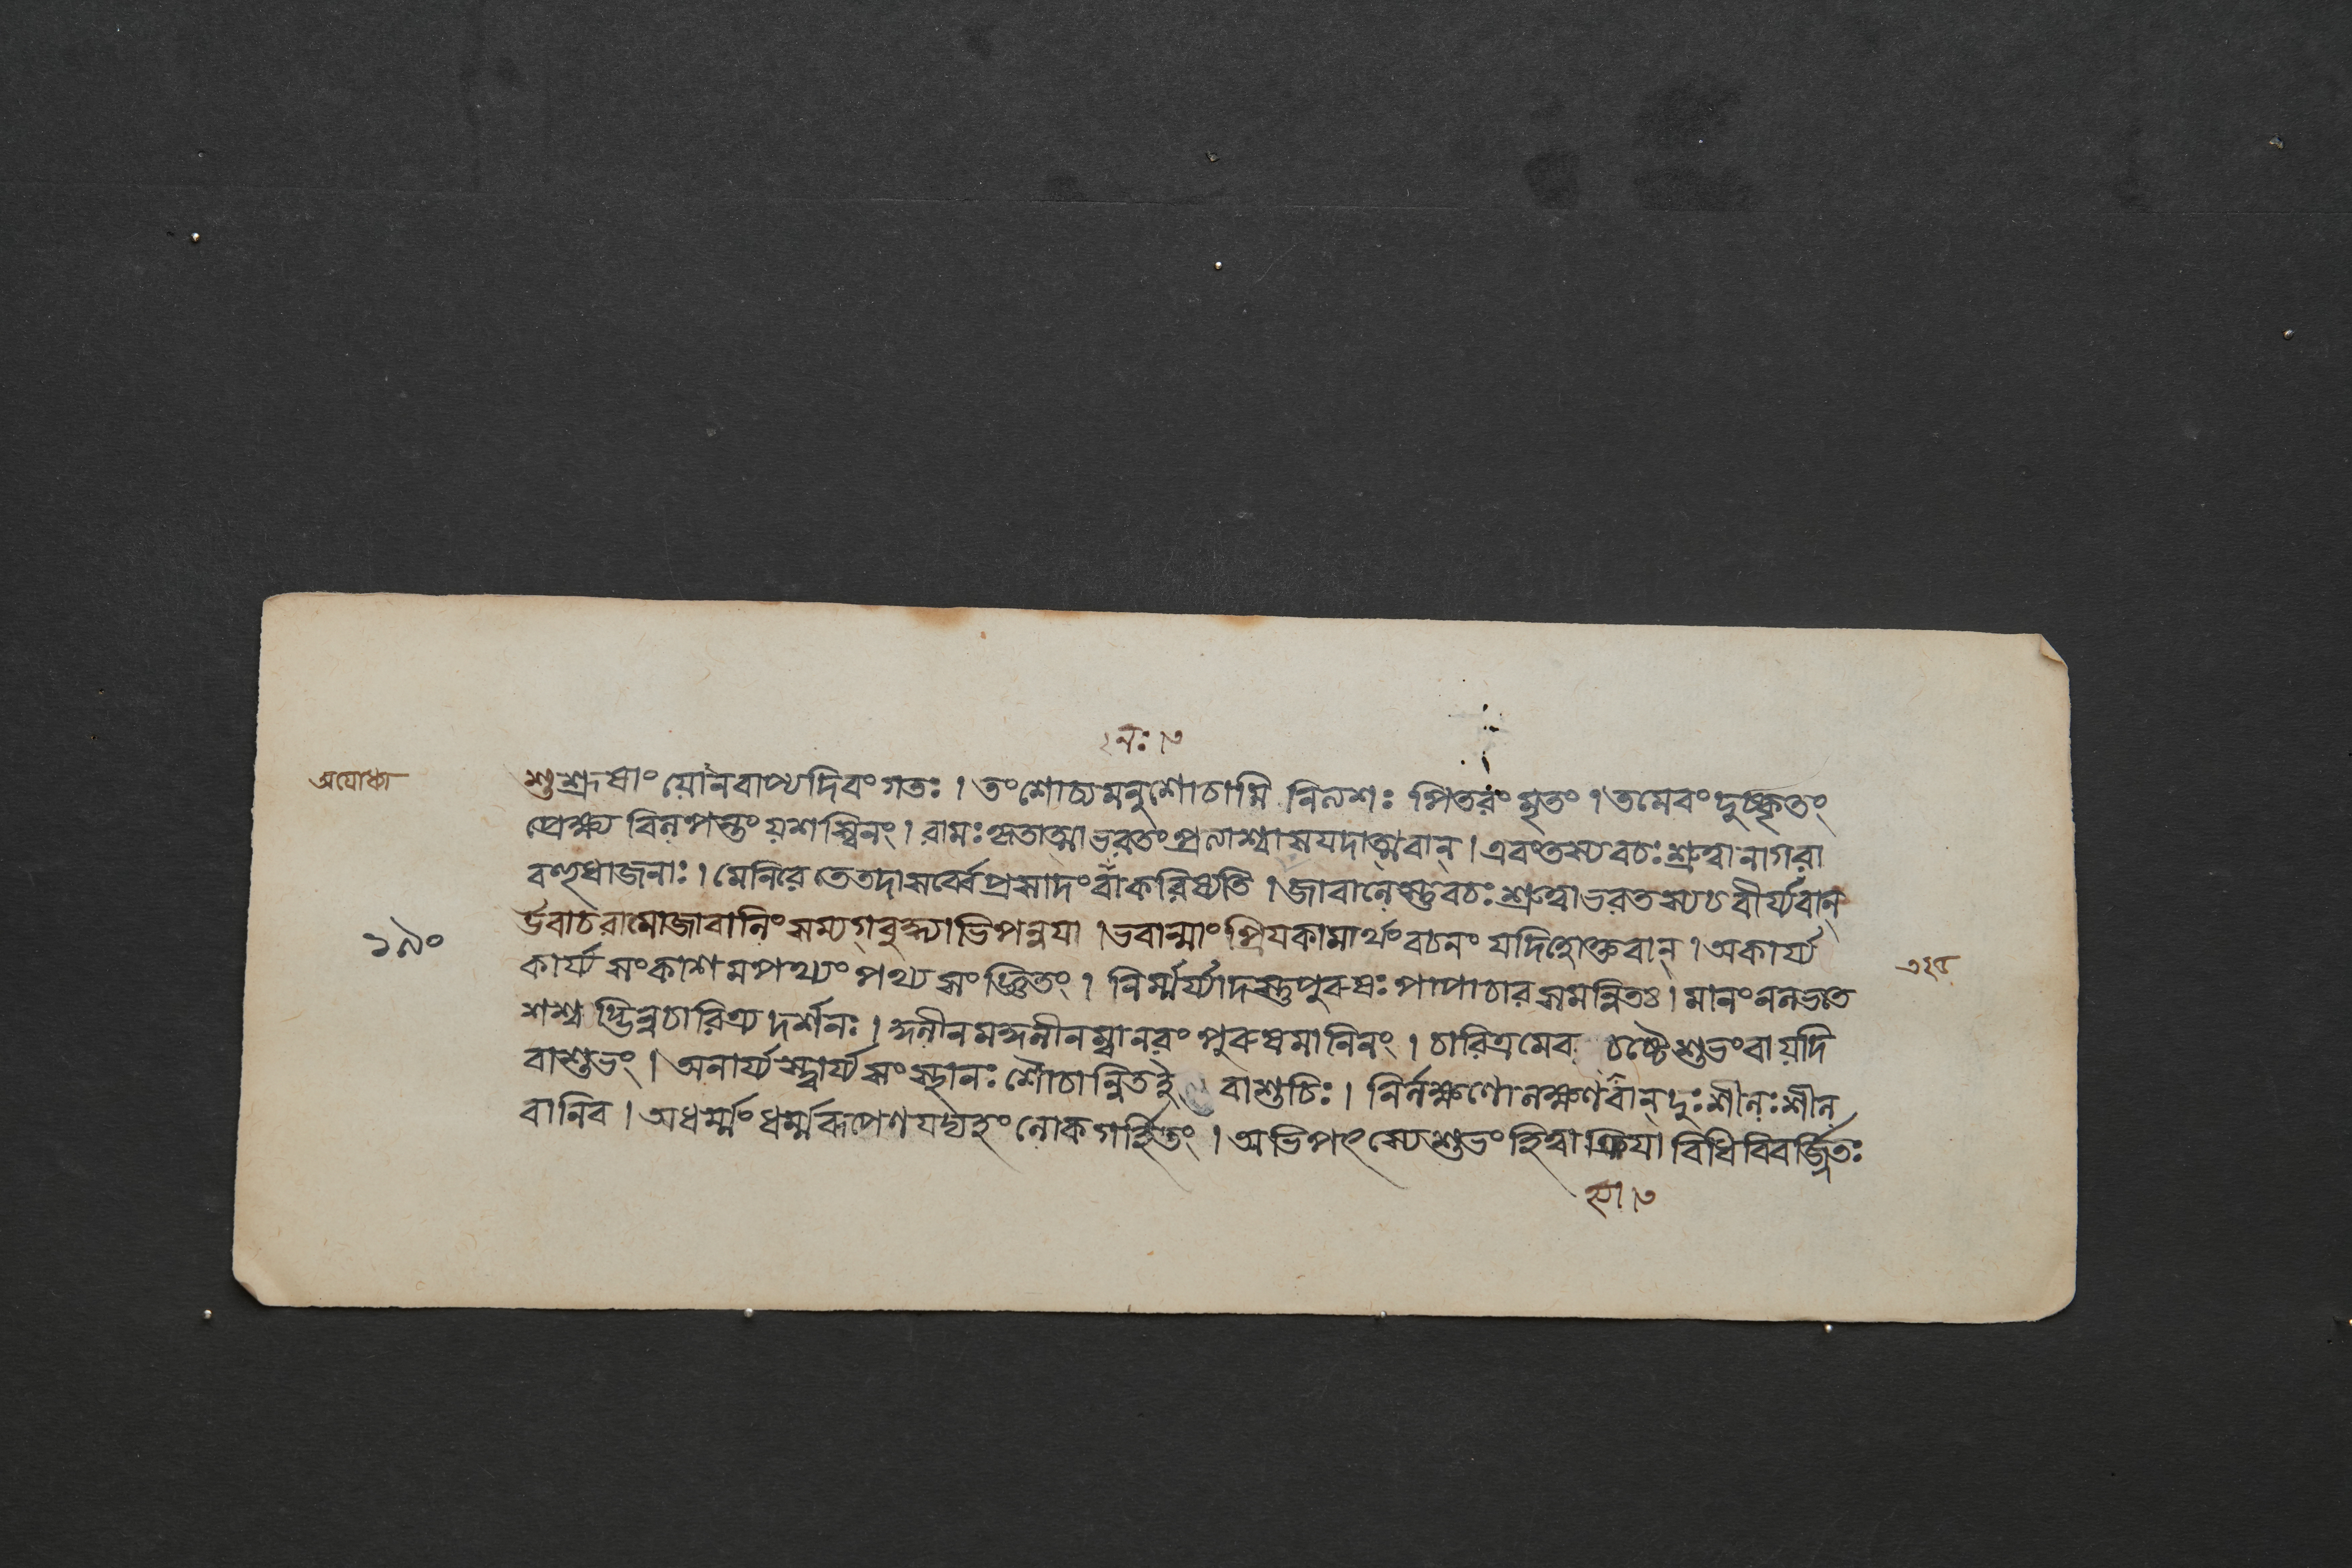 ২নঃ।৩
অযোধ্যা
শুশ্রূষাং যোনবাপ্যদিবংগতঃ। তংশোচ্যমনুশোচামি নিত্যশঃ পিতরং মৃতং। তমেবং দুষ্কৃতং
প্রেক্ষ্য বিলপন্তং যশস্বিনং। রামঃ কৃতাত্মা ভরতং প্রত্যাশ্বাসযদাত্মবান্। এবং তস্য বচঃ শ্রুত্বা নাগরা
বহুধাজনাঃ। মেনিরে তে তদা সর্ব্বে প্রসাদং বা করিষ্যতি। জাবালেস্তু বচঃ শ্রুত্বা ভরতস্য চ বীর্য্যবান্
উবাচ রামো জাবালিং সম্যগ্বুদ্ধ্যাভিপন্নযা। ভবান্মাং প্রিযকামার্থং বচনং যদিহোক্তবান্। অকার্য্য
১৯০
কার্য্য সংকাশমপথ্যং পথ্য সংজ্ঞিতং। নির্ম্মর্য্যাদস্তু পুরুষঃ পাপাচার সমন্বিতঃ। মানং ন লভতে
৩২৫
শশ্বদ্ভিন্নচারিত্র্য দর্শনঃ। কুলীনমকুলীনম্বা নরং পুরুষমানিনং। চারিত্রমেব চষ্টে শুভং বা যদি
বাশুভং। অনার্য্যস্ত্বার্য্য সংস্থানঃ শৌচান্বিত ই বাশুচিঃ। নির্লক্ষণো লক্ষণবান্ দুঃশীলঃ শীল
বানিব। অধর্ম্মং ধর্ম্মরূপেণ যদ্যহং লোক গর্হিতং। অভিপৎস্যে শুভং হিত্বা ক্রিযা বিধি বিবর্জ্জিতঃ
স্যা।৩